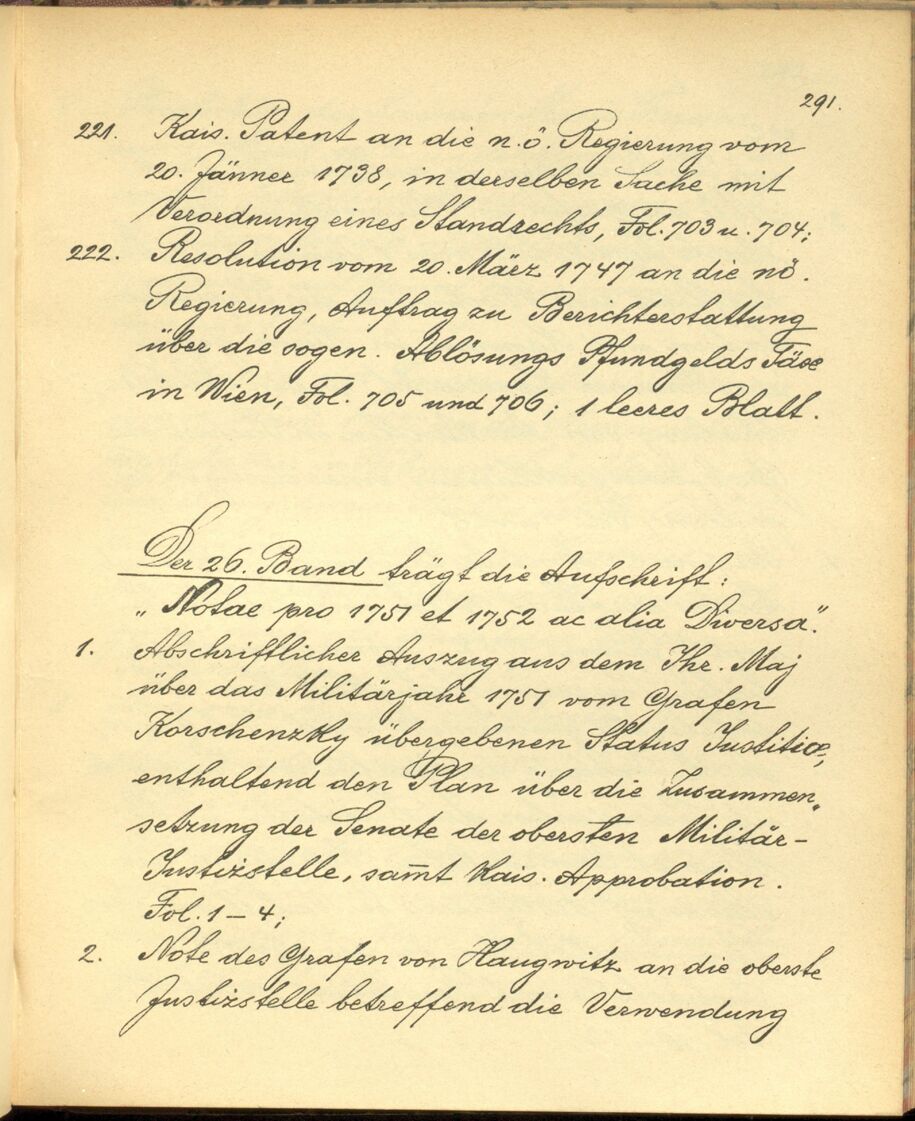 291.
221. Kais. Patent an die n.ö. Regierung vom
20. Jänner 1738, in derselben Sache mit
Verordnung eines Standrechts, Fol. 703 u. 704;
222. Resolution vom 20. März 1747 an die nö.
Regierung, Auftrag zu Berichterstattung
über die sogen. Ablösungs Pfundgelds Taxe
in Wien, Fol. 705 und 706; 1 leeres Blatt.
Der 26. Band trägt die Aufschrift:
„Notae pro 1751 et 1752 ac alia Diversa“.
1. Abschriftlicher Auszug aus dem Ihr. Maj
über das Militärjahr 1751 vom Grafen
Korschenzky übergebenen Status Justitiæ,
enthaltend den Plan über die Zusammen„
setzung der Senate der obersten Militär-
Justizstelle, sam̄t Kais. Approbation.
Fol. 1 – 4;
2. Note des Grafen von Haugwitz an die oberste
Justizstelle betreffend die Verwendung